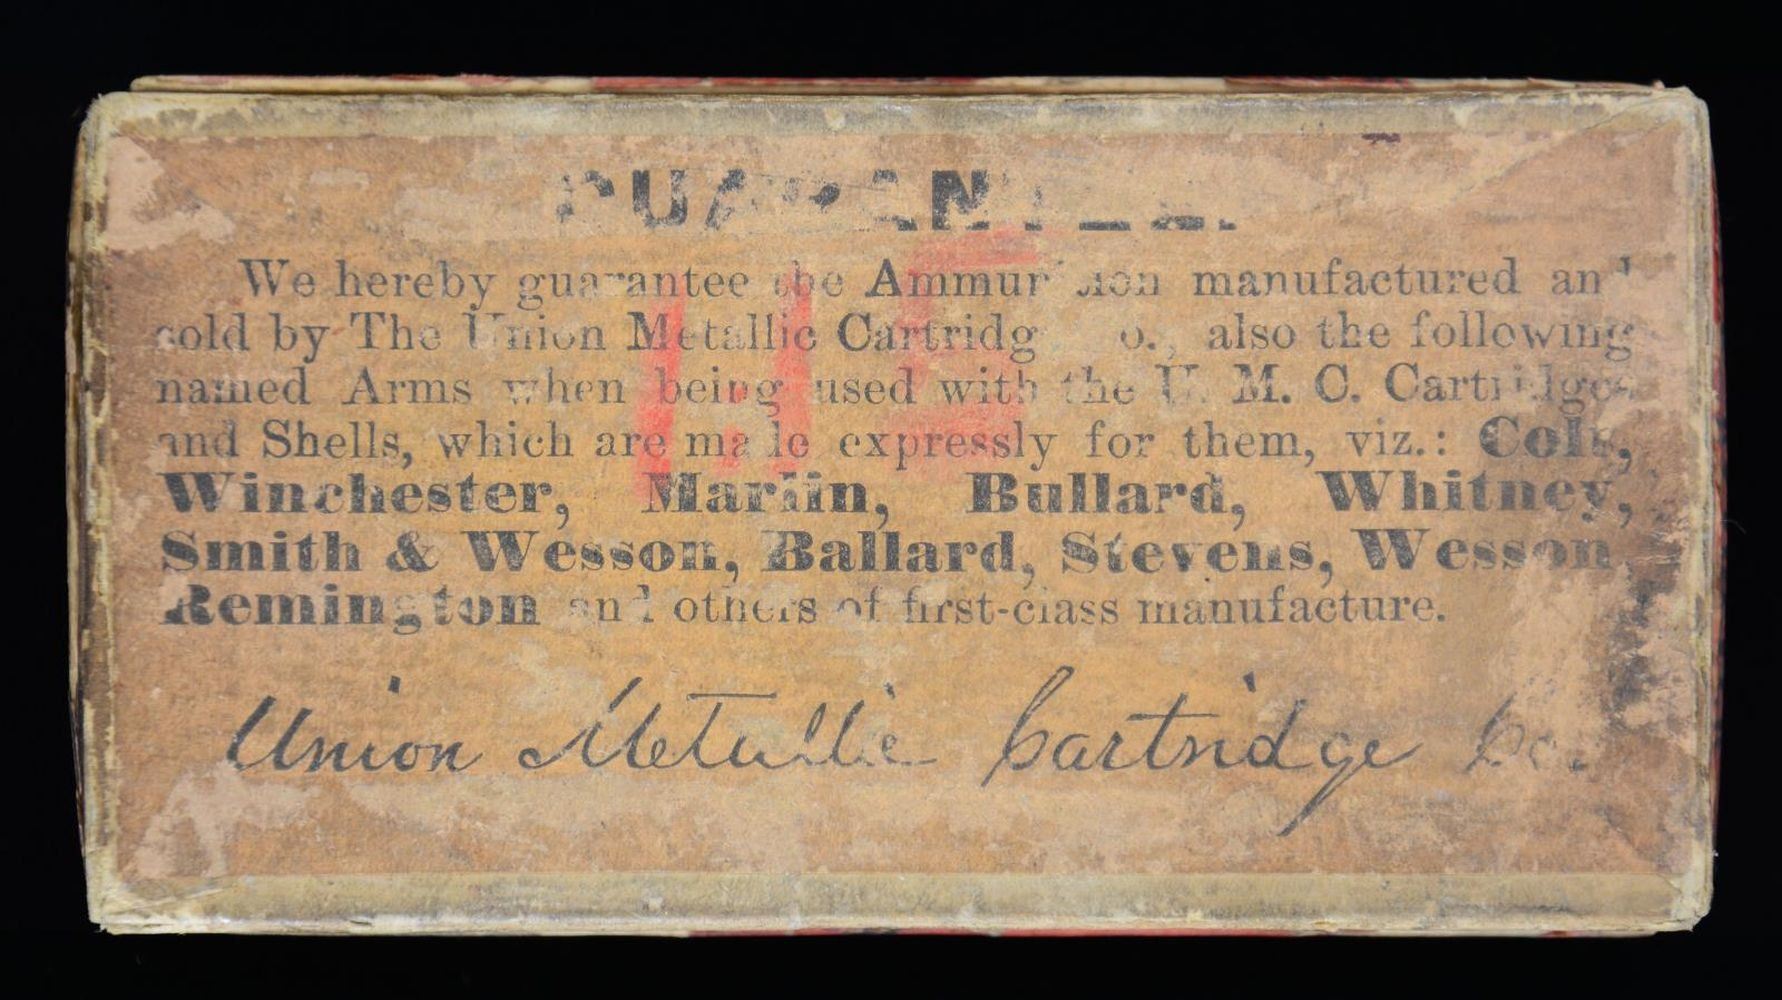 GUARANTEE.
We hereby guarantee the Ammunition manufactured and
sold by The Union Metallic Cartridge Co., also the following
named Arms when being used with the U. M. C. Cartridges
and Shells, which are made expressly for them, viz.: Colt,
Winchester, Marlin, Bullard, Whitney,
Smith & Wesson, Ballard, Stevens, Wesson,
Remington and others of first-class manufacture.
Union Metallic Cartridge Co.